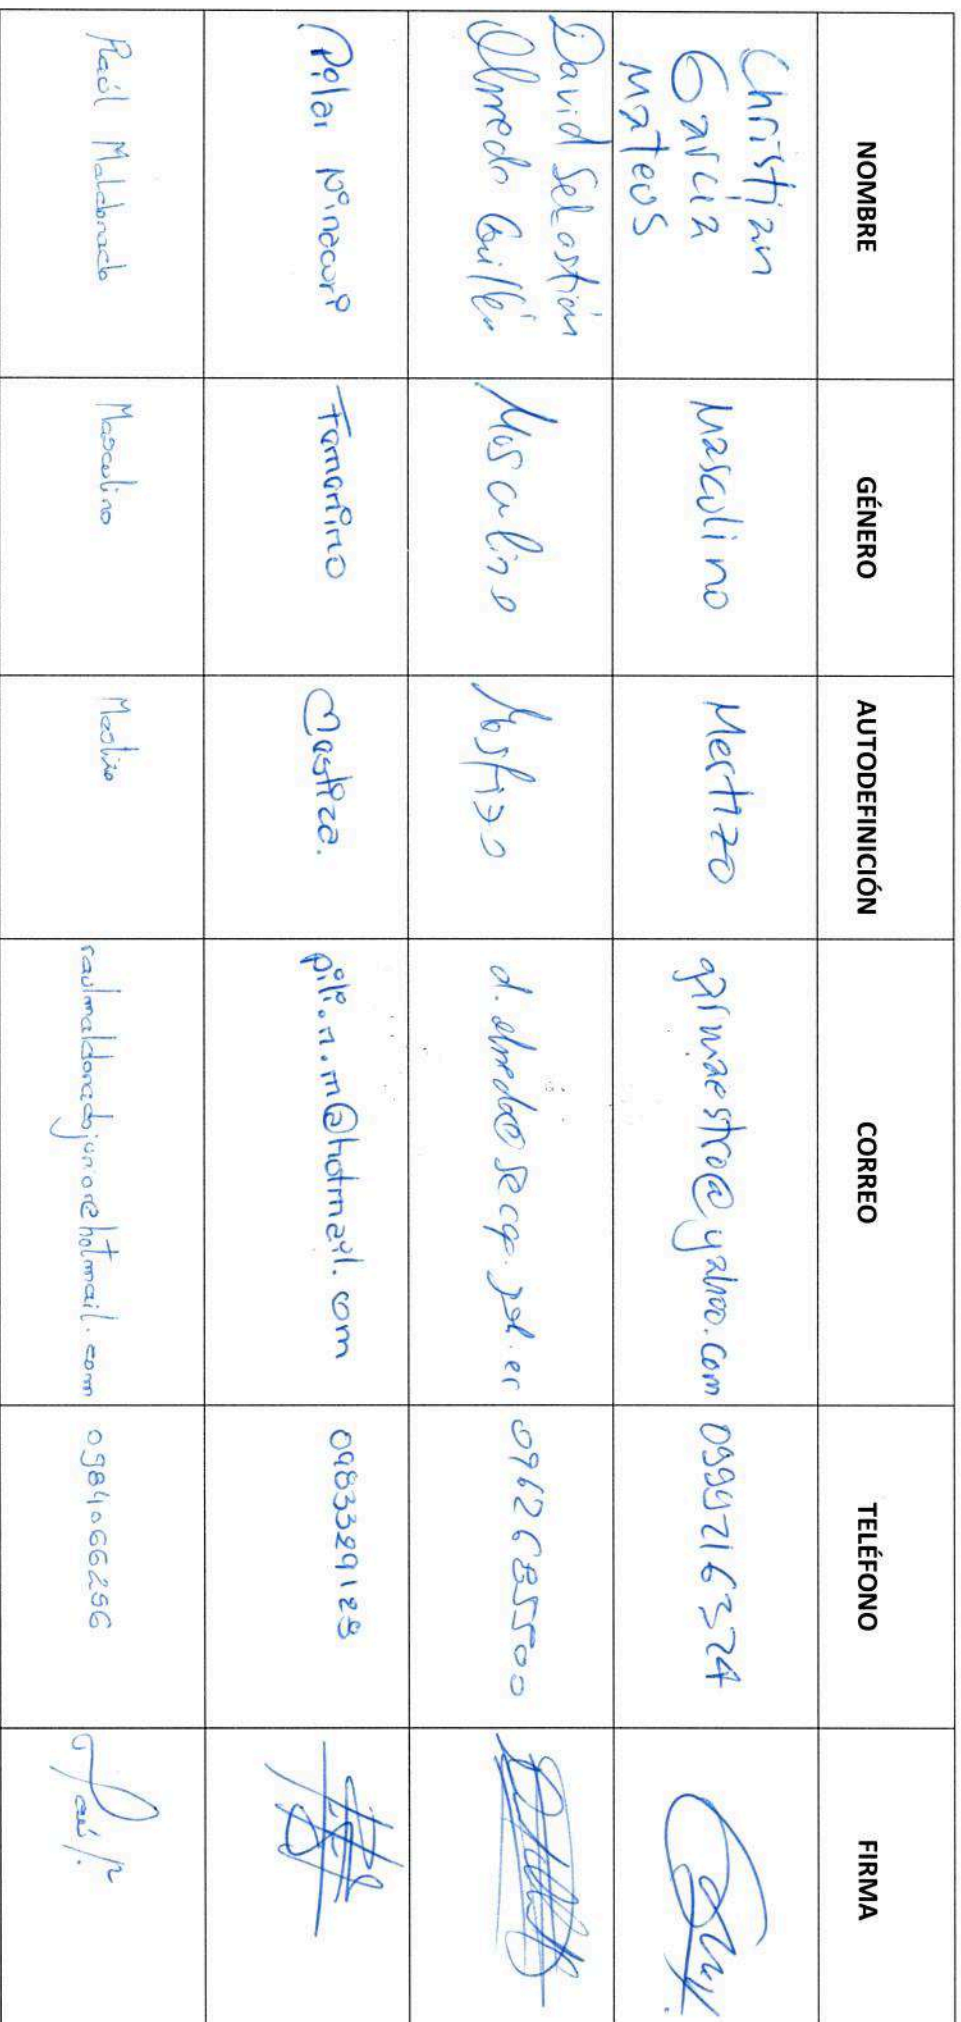 NOMBRE GÉNERO AUTODEFINICIÓN CORREO TELÉFONO FIRMA
Christian
García
Mateos
Masculino
Mestizo
garmaestro@yahoo.com
David Sebastián
Olmedo Guillén
Masculino
Mestizo
0962685500
Pilar Ninacuri
Femenino
Mestiza.
pili.n.m@hotmail.com
0983389128
Raúl Maldonado
Masculino
Mestizo
raulmaldonadojunior@hotmail.com
0984066256